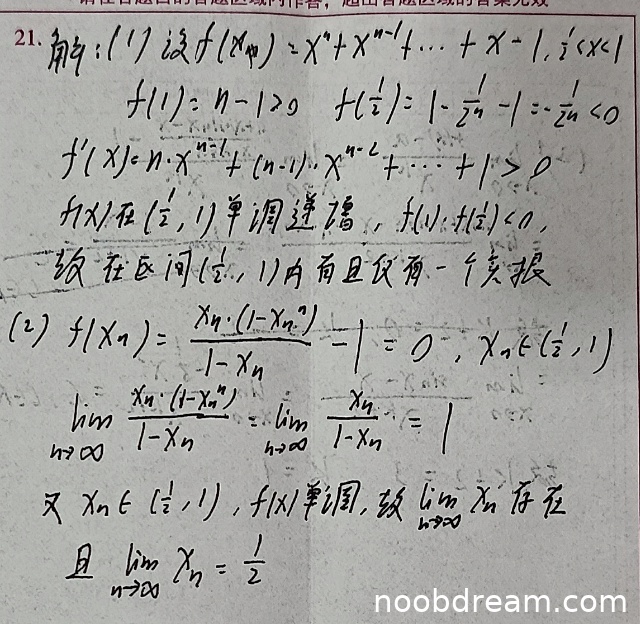 请在各题目的答题区域内作答，超出答题区域的答案无效
21. 解：(1) 设 f(x) = xⁿ + xⁿ⁻¹ + … + x - 1, 1/2 < x < 1
f(1) = n - 1 > 0 f(1/2) = 1 - 1/2ⁿ - 1 = -1/2ⁿ < 0
f'(x) = n·xⁿ⁻¹ + (n-1)·xⁿ⁻² + … + 1 > 0
f(x) 在 (1/2, 1) 单调递增, f(1)·f(1/2) < 0,
故在区间 (1/2, 1) 内有且仅有一个实根
(2) f(xₙ) = xₙ·(1-xₙⁿ)/(1-xₙ) - 1 = 0, xₙ ∈ (1/2, 1)
lim n→∞ xₙ·(1-xₙⁿ)/(1-xₙ) = lim n→∞ xₙ/(1-xₙ) = 1
又 xₙ ∈ (1/2, 1), f(x) 单调, 故 lim n→∞ xₙ 存在
且 lim n→∞ xₙ = 1/2
noobdream.com